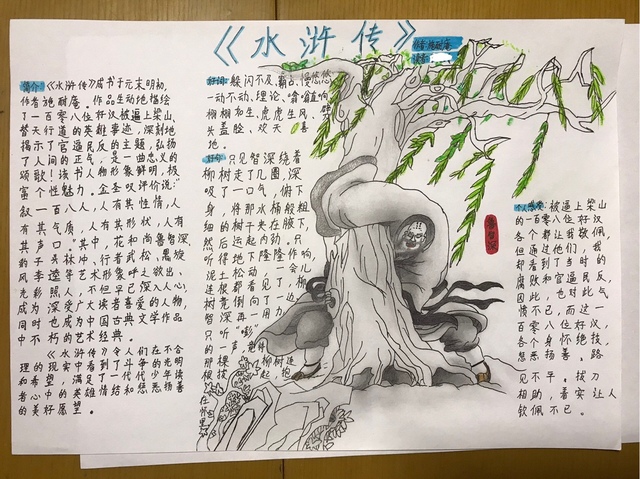 《水浒传》
作者:施耐庵
读者:
简介:《水浒传》成书于元末明初,
作者施耐庵。作品生动地描绘
了一百零八位好汉被逼上梁山,
替天行道的英雄事迹,深刻地
揭示了官逼民反的主题,弘扬
了人间的正气,是一曲忠义的
颂歌!该书人物形象鲜明,极
富个性魅力。金圣叹评价说:“
叙一百八人,人有其性情,人
有其气质,人有其形状,人有
其声口。”其中,花和尚鲁智深、
豹子头林冲、行者武松、黑旋
风李逵等艺术形象呼之欲出、
光彩照人,不但早已深入人心,
成为深受广大读者喜爱的人物,
同时也成为中国古典文学作品
中不朽的艺术经典。
《水浒传》令人们在不合
理的现实中看到了斗争的光明
和希望,满足了一代代少年读
者心中的英雄情结和惩恶扬善
的美好愿望。
好词:躲闪不及、霸占、慢悠悠
一动不动、理论、嘴嘴直响
栩栩如生、虎虎生风、劈
头盖脸、欢天喜
地。
好句:只见智深绕着
柳树走了几圈,深
吸了一口气,俯下
身,将那水桶般粗
细的树干夹在腋下,
然后运起内劲。只
听得地下隆隆作响,
泥土松动,一会儿
连根都看见了,柳
树竟倒向了一边,
智深再一用力,
只听“嘭”
的一声,竟将
那棵柳树连
根拔起,抱
在怀里。
鲁智深
个人感受:被逼上梁山
的一百零八位好汉
各个都让我敬佩,
但通过他们,我
却看到了当时的
腐败和官逼民反,
因此,也对此气
愤不已,而这一
百零八位好汉,
各个身怀绝技,
惩恶扬善。路
见不平。拔刀
相助,着实让人
钦佩不已。